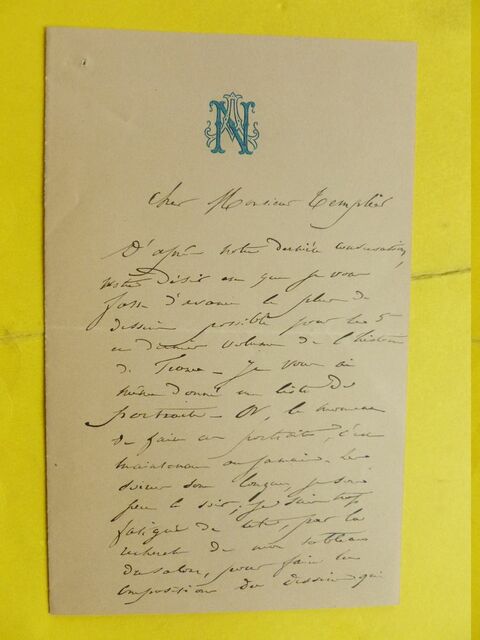 AN
Cher Monsieur Templier
D'après notre dernière conversation,
votre désir est que je vous
fasse d'avance le plus de
dessins possible pour les 5e
et dernier volume de l'histoire
de France – Je vous ai
même donné une liste des
portraits – Or, le moment
de faire ces portraits, c'est
maintenant ou jamais. Les
soirées sont longues, je sors
peu le soir, je suis trop
fatigué de tête, par la
recherche de mon tableau
du salon, pour faire les
compositions des dessins qui